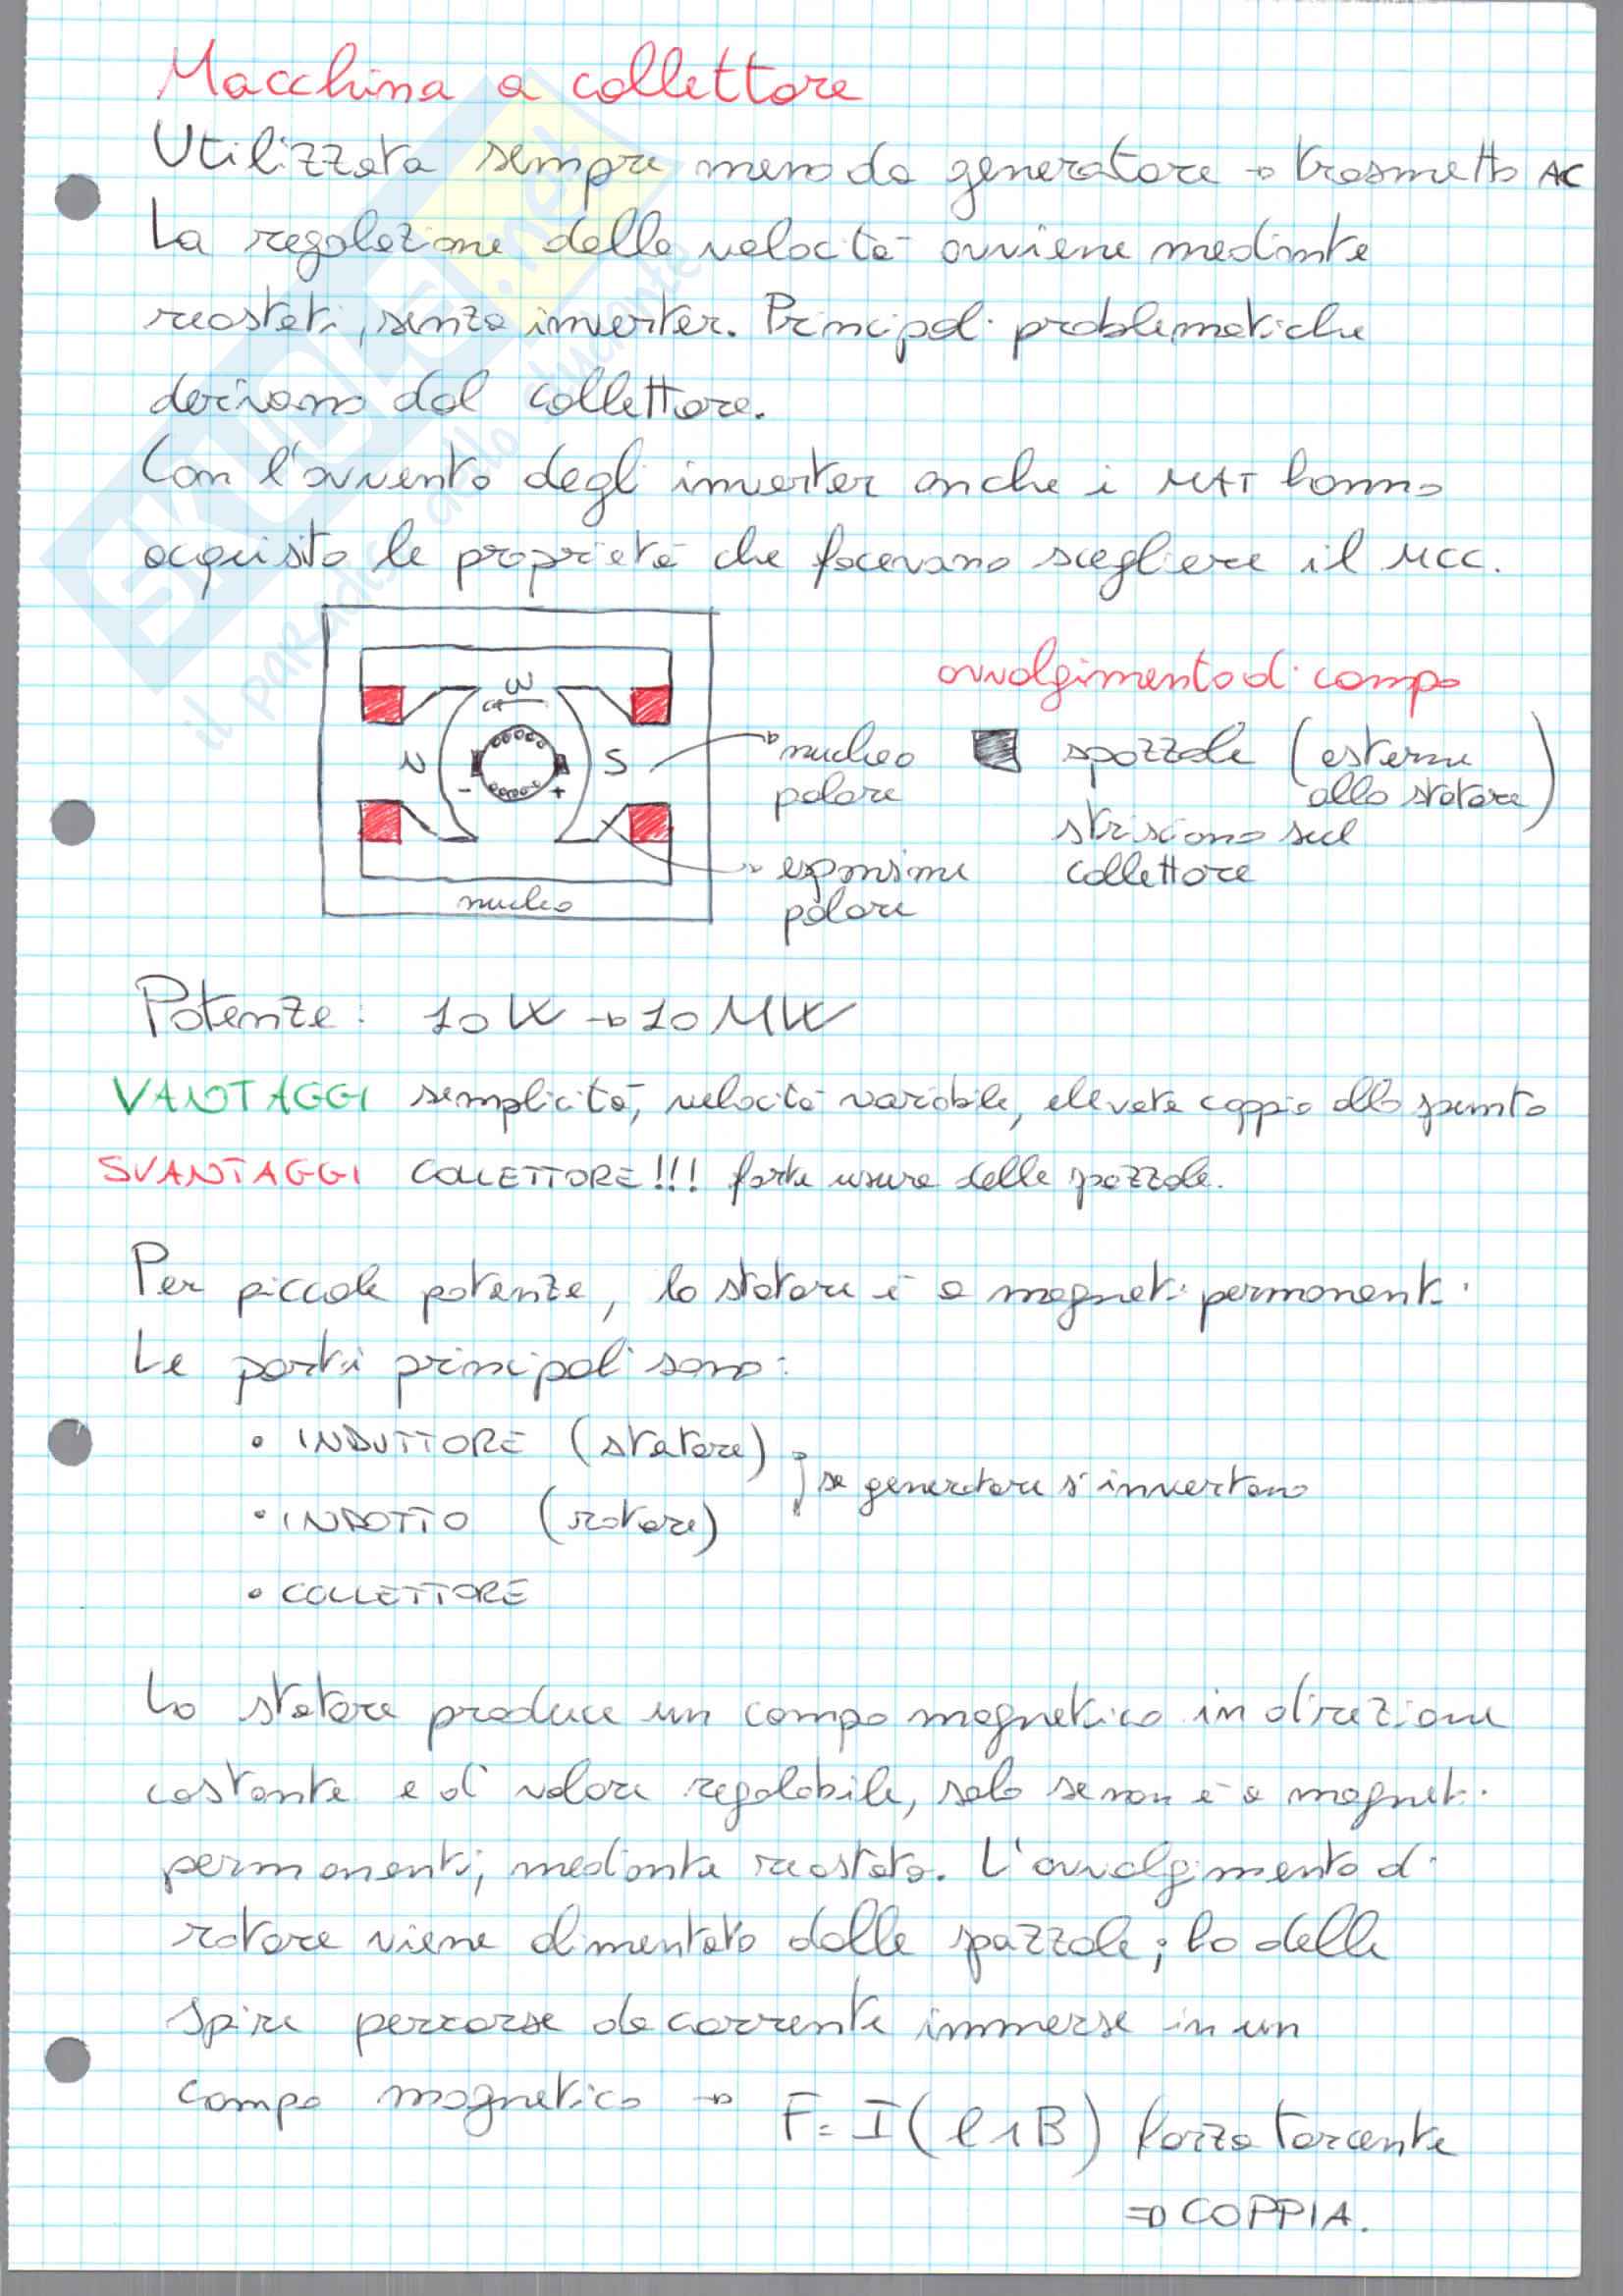 Macchina a collettore
Utilizzata sempre meno da generatore → trasmetto AC
La regolazione della velocità avviene mediante
reostati, senza inverter. Principali problematiche
derivano dal collettore.
Con l'avvento degli inverter anche i MAT hanno
acquisito le proprietà che facevano scegliere il MCC.
avvolgimento di campo
ω
N
S
-
+
nucleo
polare
espansione
polare
nucleo
spazzole (esterne
allo statore)
strisciano sul
collettore
Potenze: 10 W → 10 MW
VANTAGGI semplicità, velocità variabile, elevata coppia allo spunto
SVANTAGGI COLLETTORE!!! forte usura delle spazzole.
Per piccole potenze, lo statore è a magneti permanenti.
Le parti principali sono:
• INDUTTORE (statore)
se generatore s'invertono
• INDOTTO (rotore)
• COLLETTORE
Lo statore produce un campo magnetico in direzione
costante e di valore regolabile, solo se non è a magneti
permanenti, mediante reostato. L'avvolgimento di
rotore viene alimentato dalle spazzole; ho delle
spire percorse da corrente immerse in un
campo magnetico → F = I(l∧B) forza torcente
⇒ COPPIA.
SKUOLA.net
il paradiso dello studente